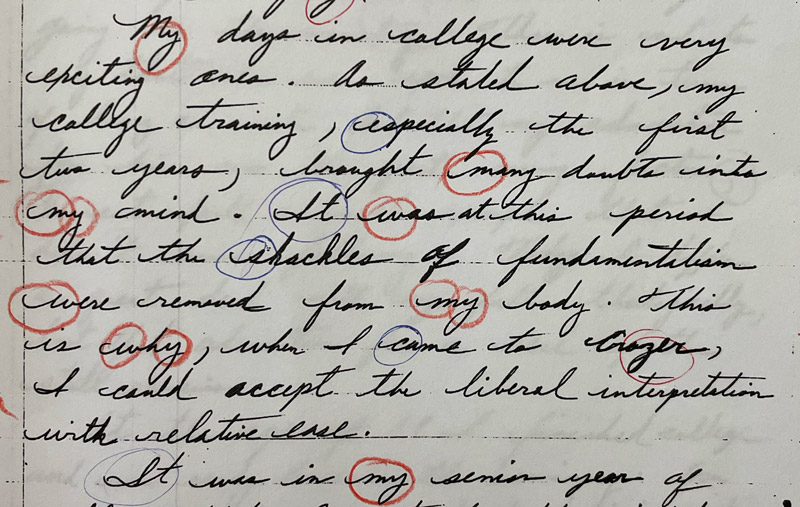 My days in college were very
exciting ones. As stated above, my
college training, especially the first
two years, brought many doubts into
my mind. It was at this period
that the shackles of fundamentalism
were removed from my body. This
is why, when I came to Crozer,
I could accept the liberal interpretation
with relative ease.
It was in my senior year of